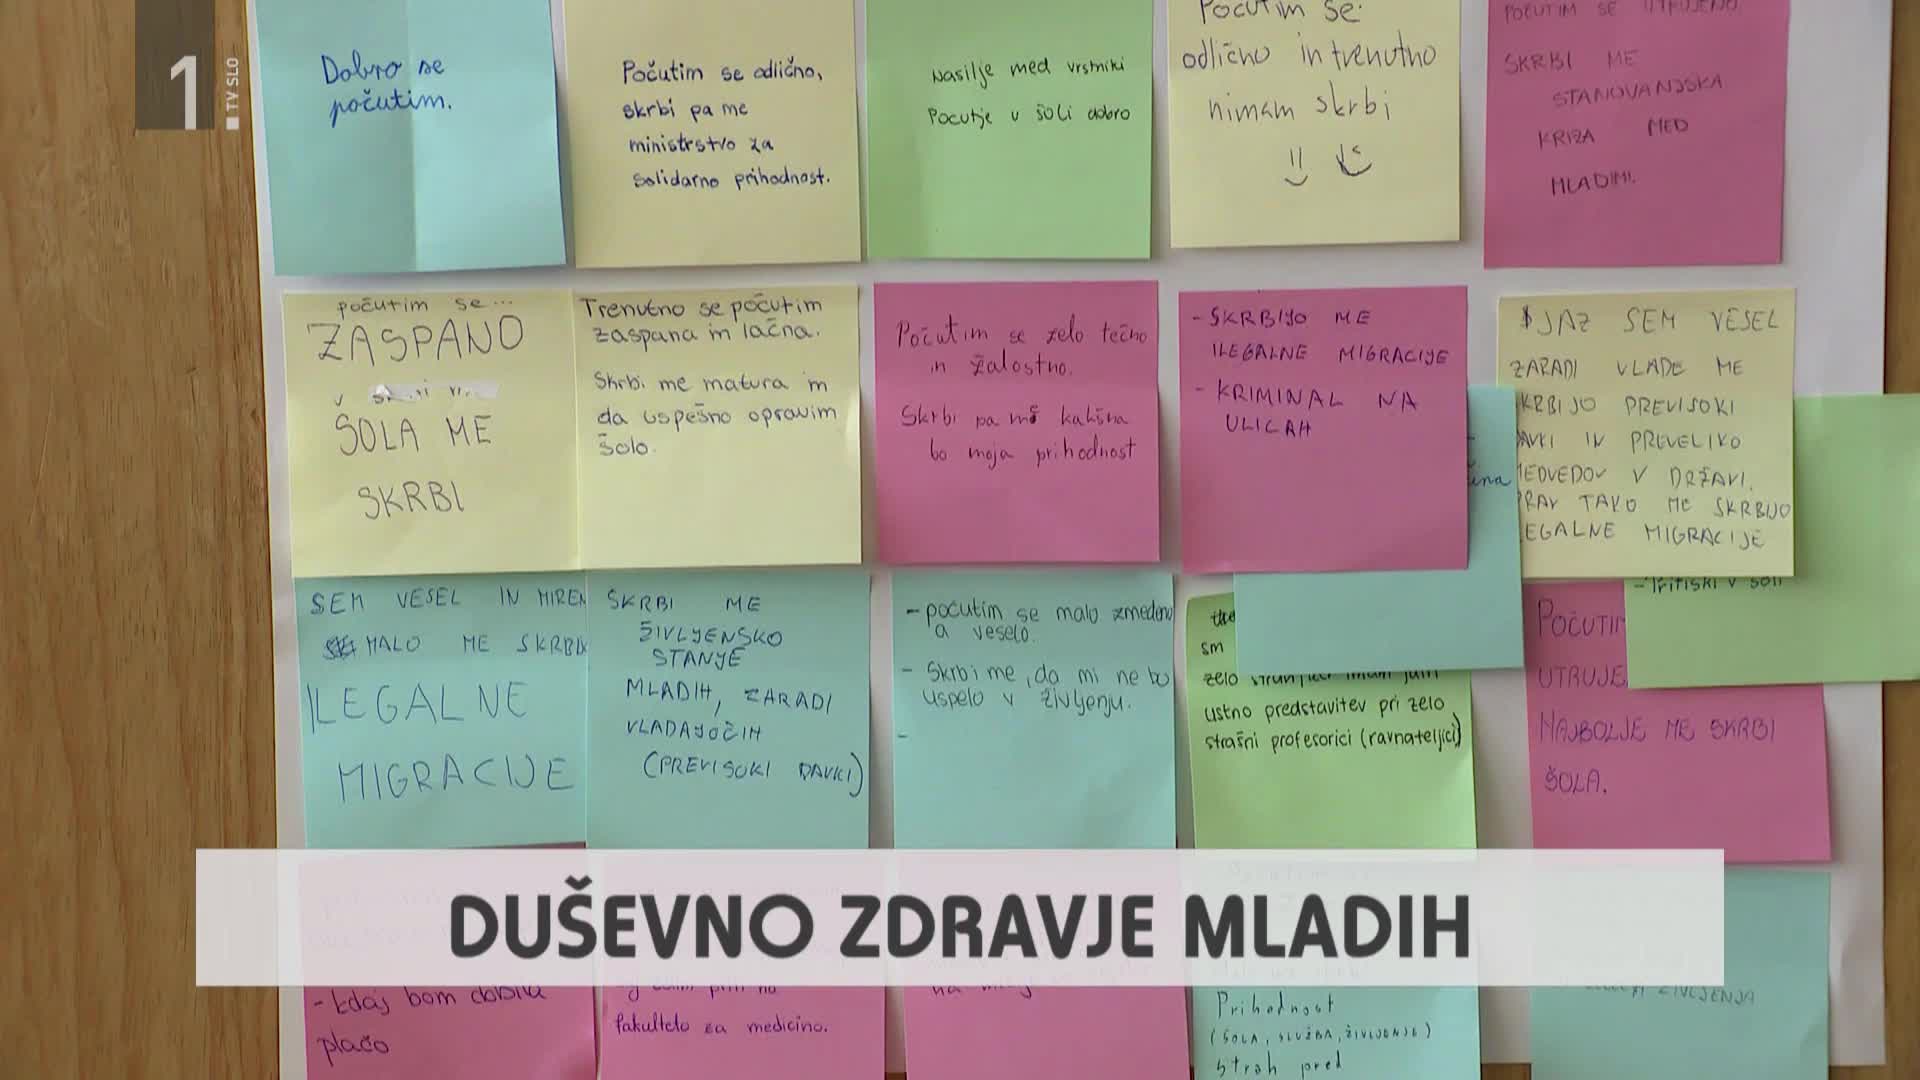 1
TV SLO
Dobro se
počutim.
Počutim se odlično,
skrbi pa me
ministrstvo za
solidarno prihodnost.
Nasilje med vrstniki
Pocutje v šoli dobro
Počutim se:
odlično in trenutno
nimam skrbi
POČUTIM SE UTRUJENO
SKRBI ME
STANOVANJSKA
KRIZA MED
MLADIMI.
počutim se...
ZASPANO
v
ŠOLA ME
SKRBI
Trenutno se počutim
zaspana in lačna.
Skrbi me matura in
da uspešno opravim
šolo.
Počutim se zelo tečno
in žalostno.
Skrbi pa me kakšna
bo moja prihodnost
- SKRBIJO ME
ILEGALNE MIGRACIJE
- KRIMINAL NA
ULICAH
JAZ SEM VESEL
ZARADI VLADE ME
SKRBIJO PREVISOKI
DAVKI IN PREVELIKO
MEDVEDOV V DRŽAVI.
PRAV TAKO ME SKRBIJO
ILEGALNE MIGRACIJE
SEM VESEL IN MIREN
MALO ME SKRBIJO
ILEGALNE
MIGRACIJE
SKRBI ME
ŽIVLJENSKO
STANJE
MLADIH, ZARADI
VLADAJOČIH
(PREVISOKI DAVKI)
- počutim se malo zmedeno
a veselo.
- Skrbi me, da mi ne bo
uspelo v življenju.
-
sm
zelo
ustno predstavitev pri zelo
strašni profesorici (ravnateljici)
- Pritiski v šoli
POČUTIM
UTRUJE
NAJBOLJE ME SKRBI
ŠOLA.
DUŠEVNO ZDRAVJE MLADIH
- kdaj bom dobila
plačo
fakulteto za medicino.
na
Prihodnost
(ŠOLA, SLUŽBA, ŽIVLJENJE)
Strah pred
ŽIVLJENJA